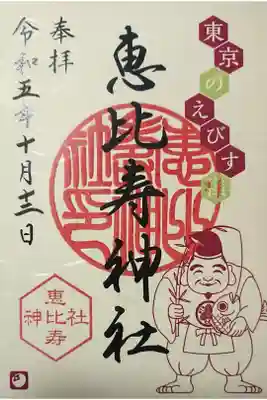 東京のえびす
恵比寿神社
奉拝
令和五年十月十三日
恵
神比社
寿